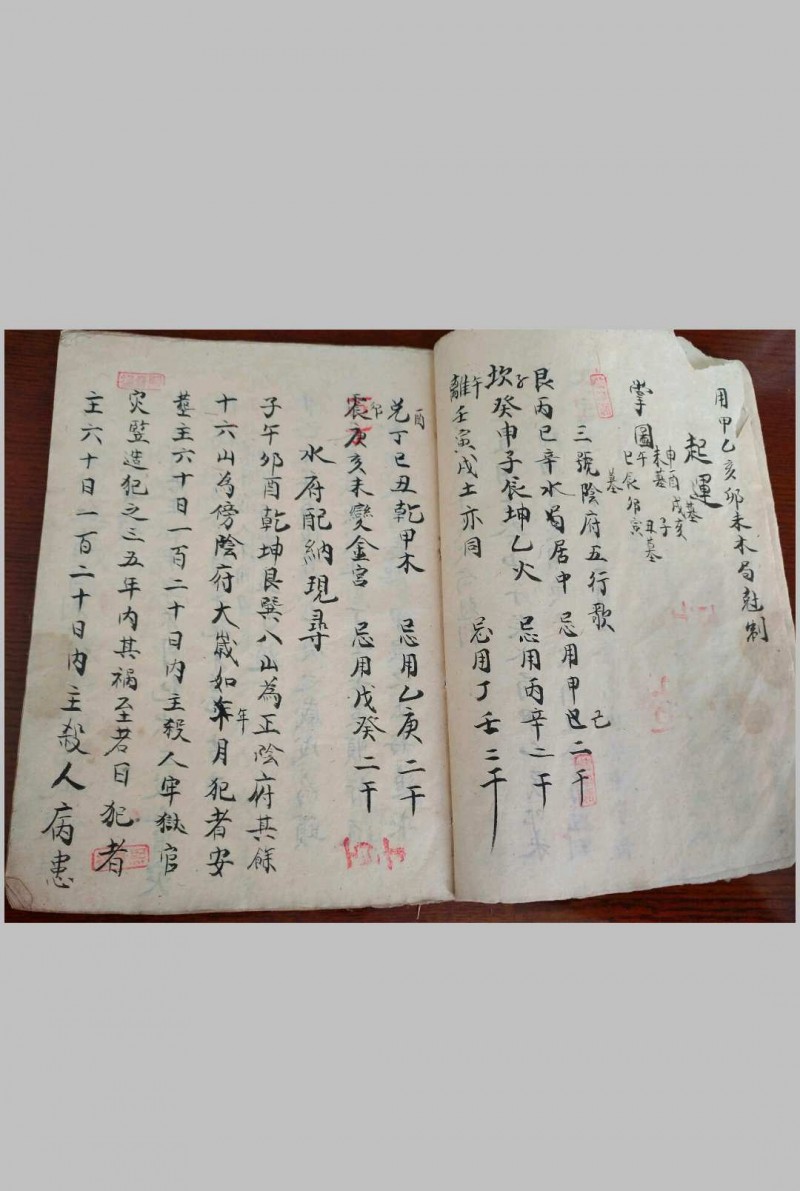 用甲乙亥卯未木局尅制
起運
申酉戌亥
未墓 子
掌圖 午 丑墓
巳辰卯寅
三號陰府五行歌
艮丙巳辛水局居中 忌用甲己二干
坎子癸申子辰坤乙火 忌用丙辛二干
離午壬寅戌土亦同 忌用丁壬二干
兑酉丁巳丑乾甲木 忌用乙庚二干
震卯庚亥未巽金宮 忌用戊癸二干
水府配納現尋
子午卯酉乾坤艮巽八山為正陰府其餘
十六山為傍陰府大歲如年月犯者安
墓主六十日一百二十日内主殺人牢獄官
灾豎造犯之三五年内其禍至若日犯者
主六十日一百二十日内主殺人病患